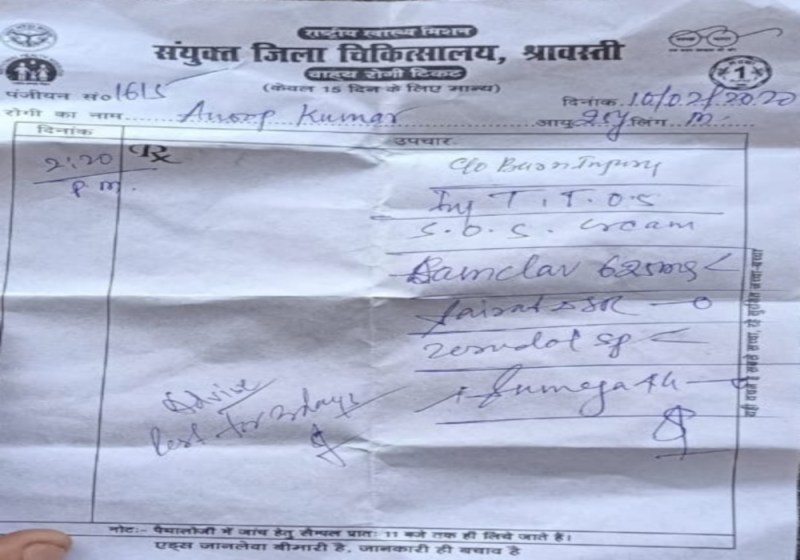 राष्ट्रीय स्वास्थ्य मिशन
संयुक्त जिला चिकित्सालय, श्रावस्ती
वाह्य रोगी टिकट
(केवल 15 दिन के लिए मान्य)
पंजीयन सं० 1615
दिनांक 10/02/2020
रोगी का नाम Anoop Kumar आयु लिंग M
दिनांक
उपचार
2:20 P.m.
Rx
C/o Burn Injury
Inj T.T. 0.5
S.O.S. cream
625mg
zerodol sp
Advise
Rest for days
नोटः- पैथालोजी में जांच हेतु सैम्पल प्रातः 11 बजे तक ही लिये जाते हैं।
एड्स जानलेवा बीमारी है, जानकारी ही बचाव है